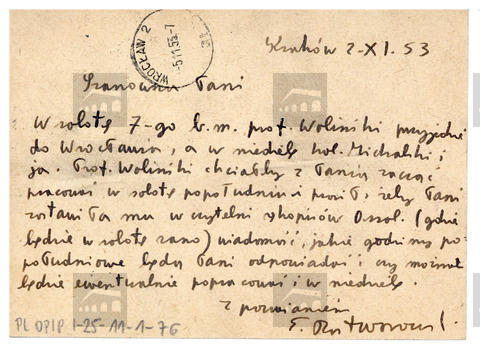 WROCŁAW 2
-5.11.53-7
Kraków 2-XI.53
Szanowna Pani
W sobotę 7-go b.m. prof. Woliński przyjedzie
do Wrocławia, a w niedzielę kol. Michalski i
ja. Prof. Woliński chciałby z Panią zacząć
pracować w sobotę popołudniu i prosił, żeby Pani
zostawiła mu w czytelni rkopisów Ossol. (gdzie
będzie w sobotę rano) wiadomość, jakie godziny po-
południowe będą Pani odpowiadać i czy można
będzie ewentualnie popracować w niedzielę.
Z poważaniem
E. Rostworowski
PL OPIP I-25-11-1-76